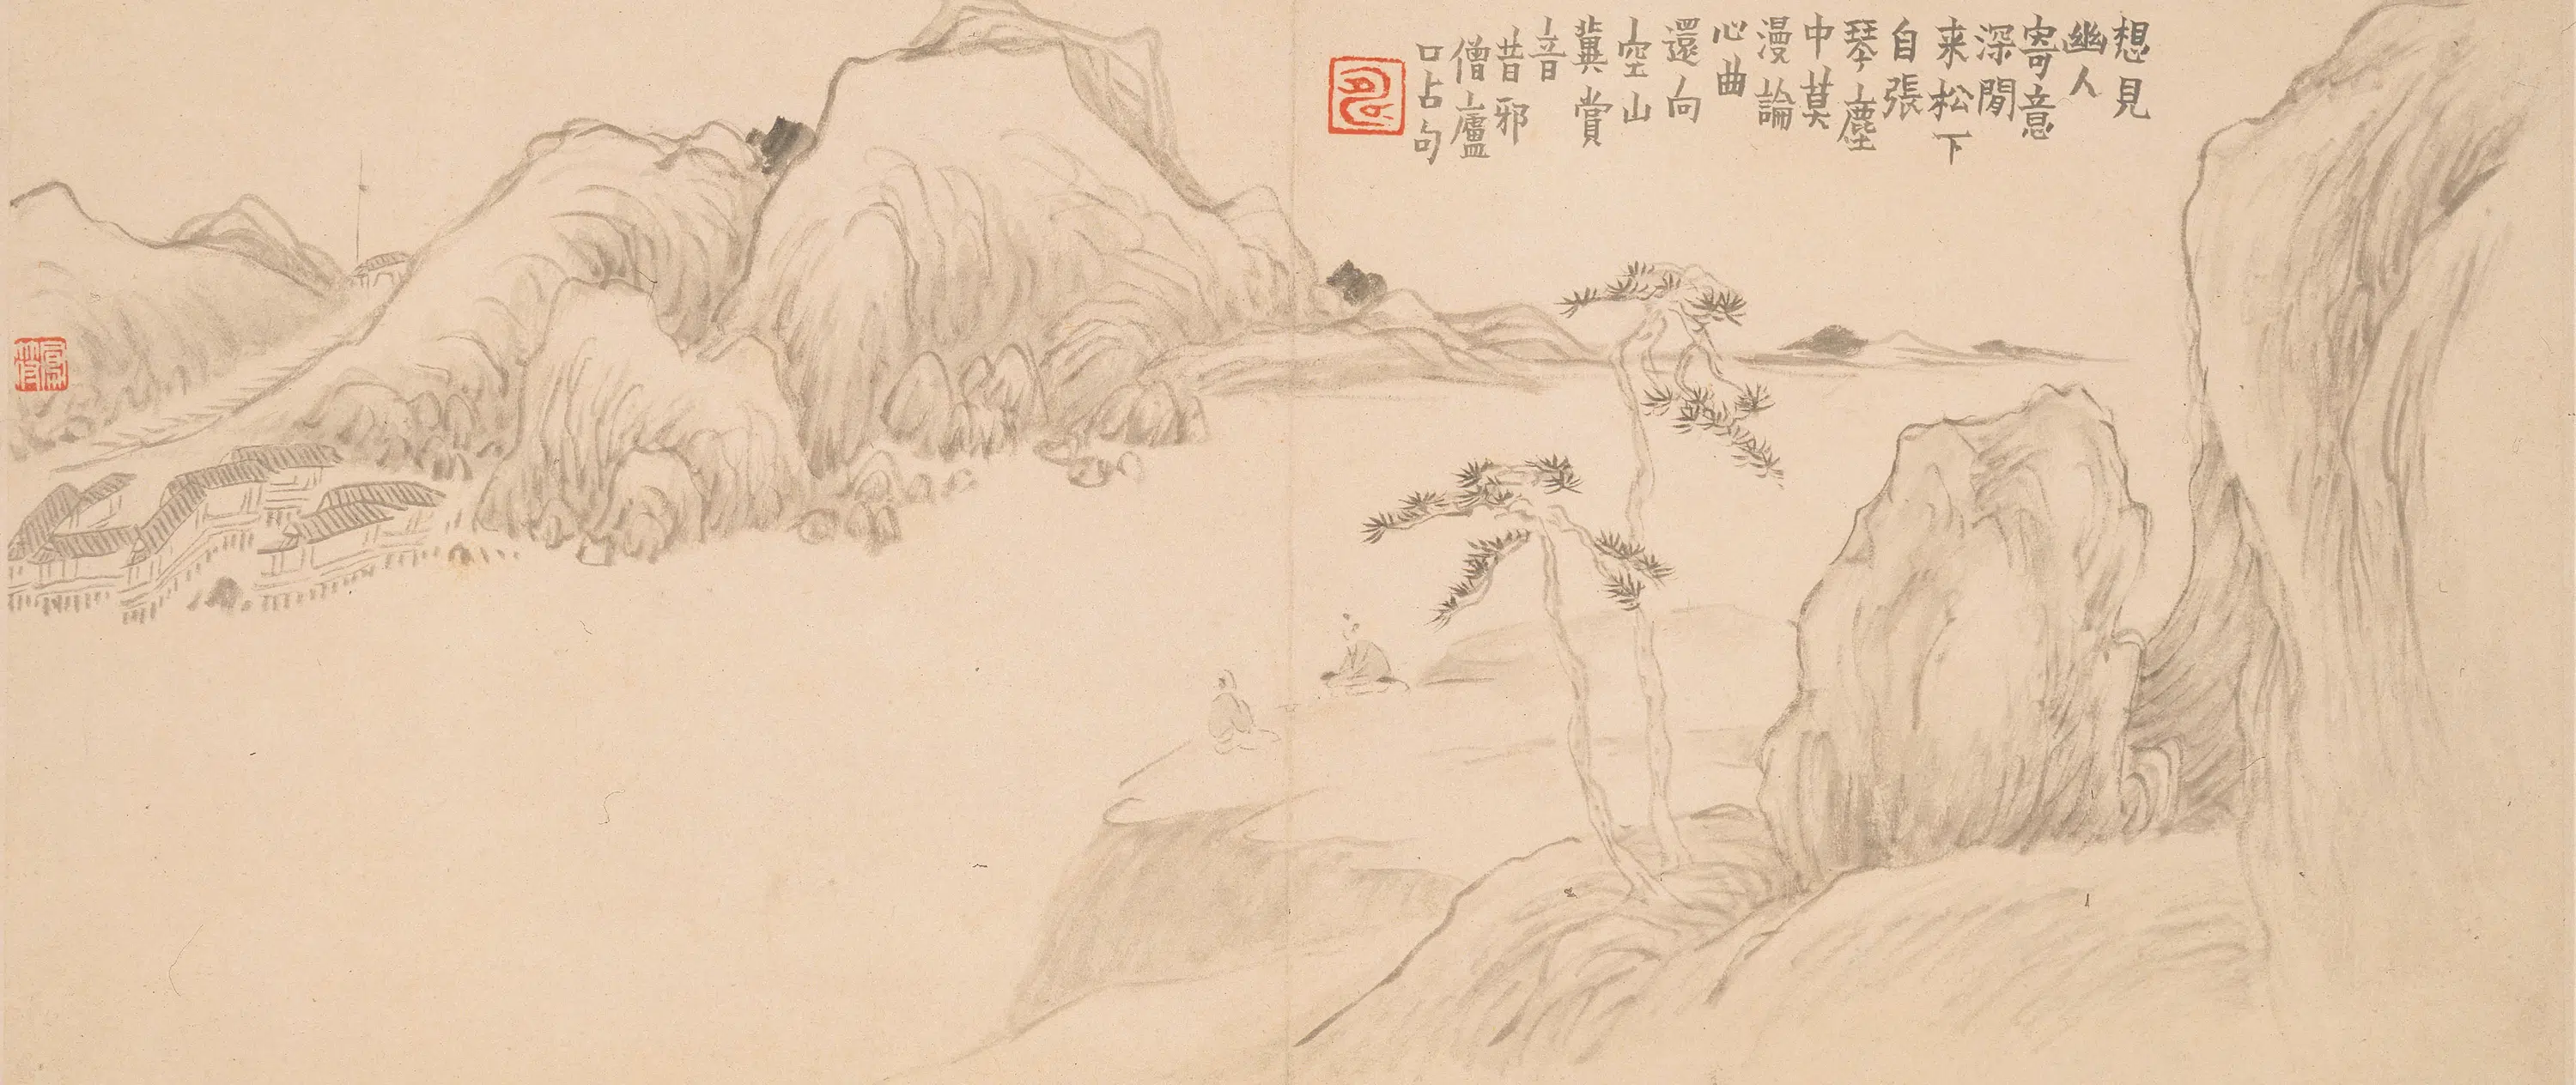 想見
幽人
寄意
深閒
来松下
自張
琴塵
中莫
漫論
心曲
還向
空山
冀賞
音
昔邪
僧廬
口占句